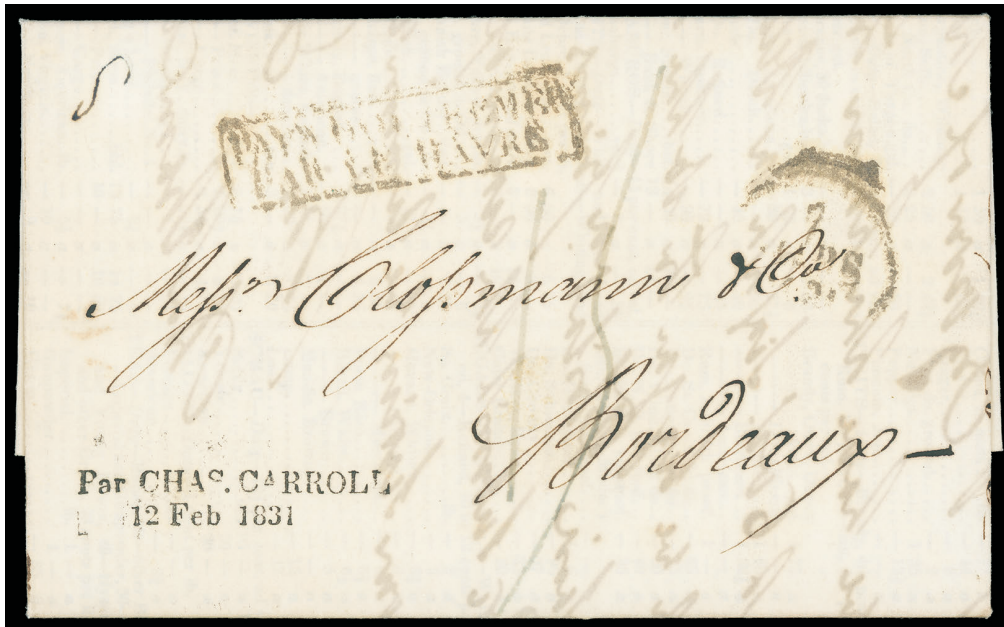 PAYS D'OUTREMER
PAR LE HAVRE
7
MARS
Messrs Clossmann & Co
Bordeaux
Par CHAS. CARROLL
12 Feb 1831